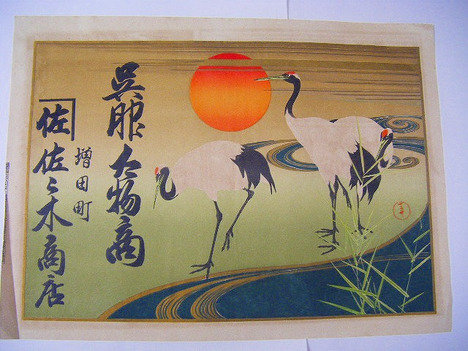 呉服太物商
増田町
佐 佐々木商店